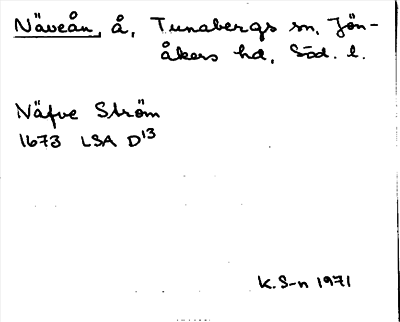 Näveån, å, Tunabergs sn, Jön-
åkers hd, Söd. l.
Näfve Ström
1673 LSA D¹³
K. S-n 1971